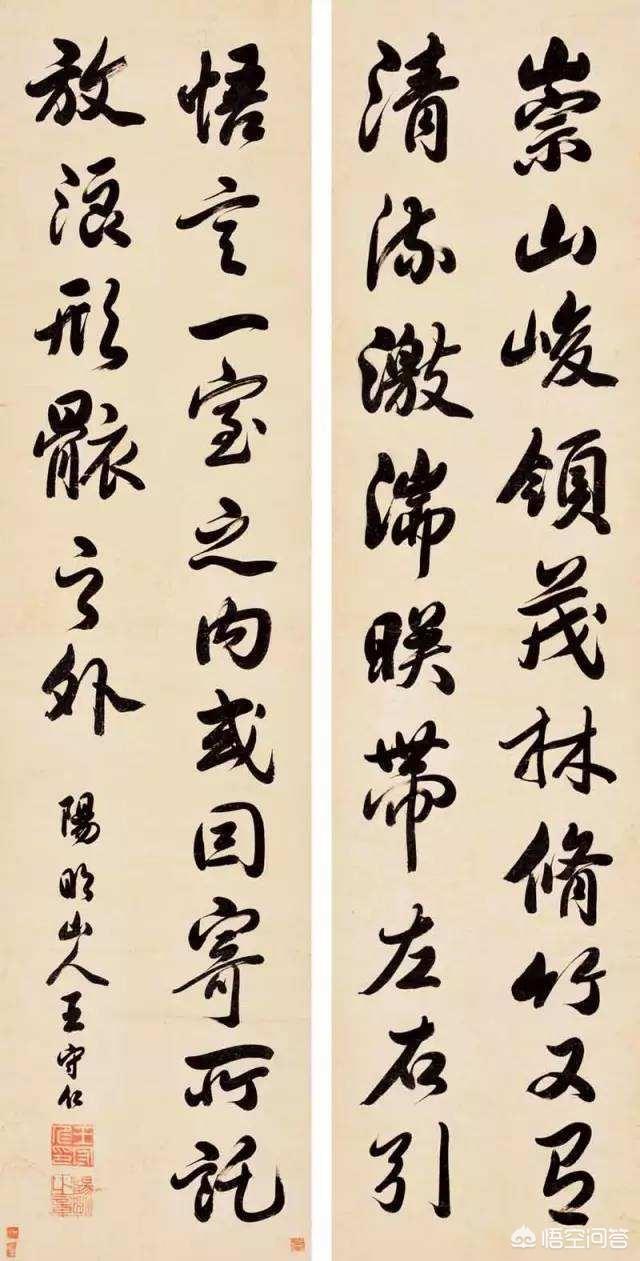 崇山峻領茂林脩竹又有
清流激湍暎帶左右引
悟言一室之内或因寄所託
放浪形骸之外
陽明山人王守仁
悟空问答